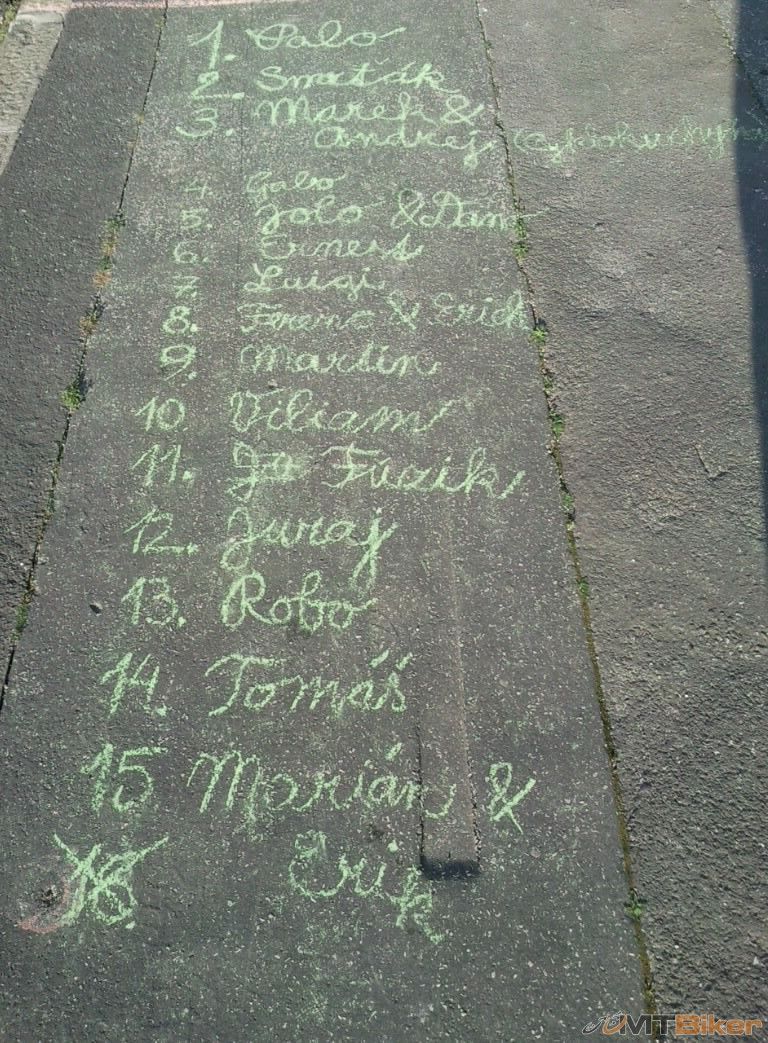 1. Palo
2. Smaťák
3. Marek &
Andrej
4. Gabo
5. Jolo & Dan
6. Ernest
7. Luigi
8. Ferenc & Erich
9. Martin
10 Viliam
11. Fuzik
12. Juraj
13. Robo
14. Tomáš
15 Marián &
Erik
MTBiker